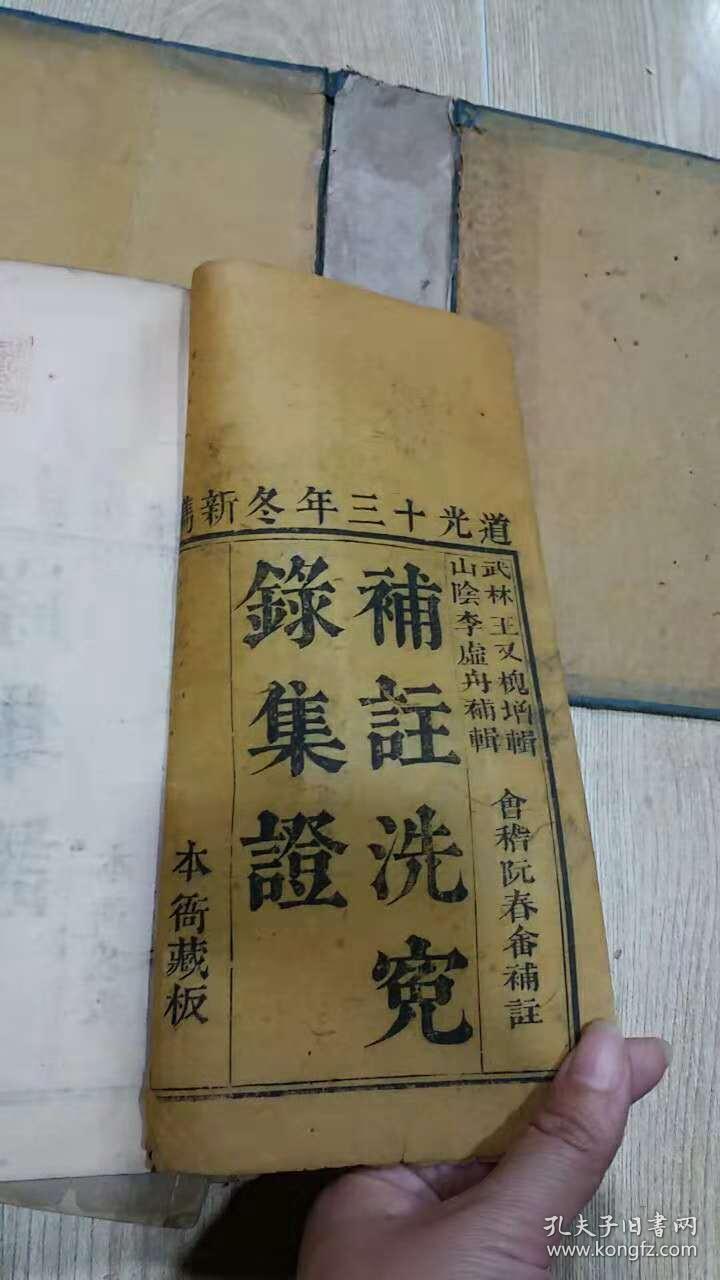 道光十三年冬新鐫
武林王又槐增輯
山陰李虛舟補輯
會稽阮春畬補註
補註洗寃
錄集證
本衙藏板
孔夫子旧书网
www.kongfz.com